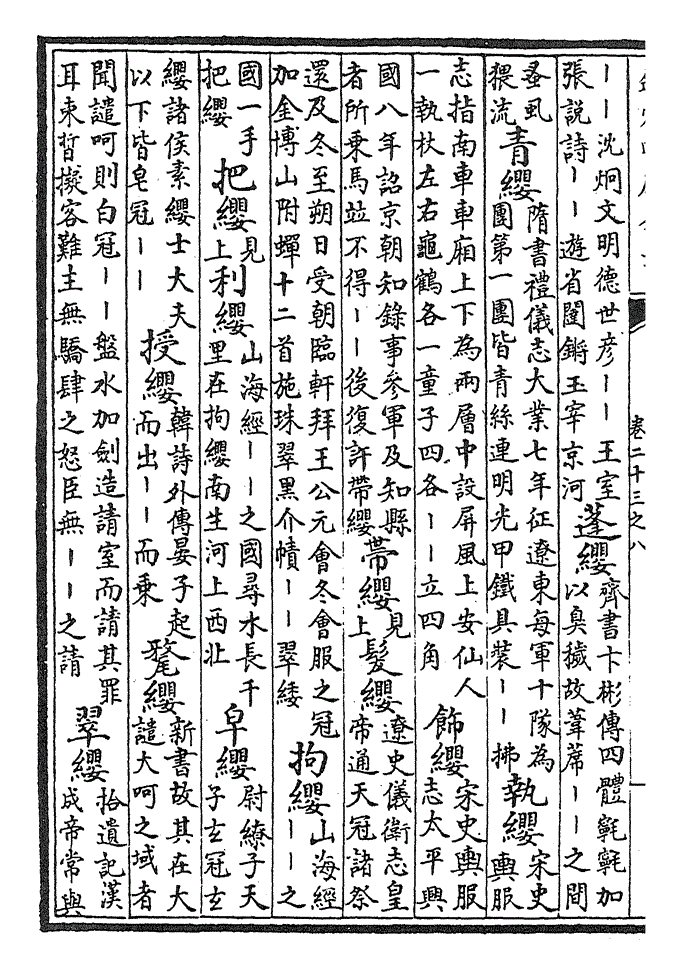 卷二十三之八
－－沈炯文明德世彥－－王室
張說詩－－遊省闥鏘玉宰京河
蓬纓
齊書卞彬傳四體㲰㲰加
以臭穢故葦蓆－－之間
蚤虱
猥流
青纓
隋書禮儀志大業七年征遼東每軍十隊為
團第一團皆青絲連明光甲鐵具裝－－拂
執纓
宋史
輿服
志指南車車廂上下為兩層中設屏風上安仙人
一執杖左右龜鶴各一童子四各－－立四角
飾纓
宋史輿服
志太平興
國八年詔京朝知錄事參軍及知縣
者所乘馬並不得－－後復許帶纓
帶纓
見
上
髮纓
遼史儀衛志皇
帝通天冠諸祭
還及冬至朔日受朝臨軒拜王公元會冬會服之冠
加金博山附蟬十二首施珠翠黑介幘－－翠緌
拘纓
山海經
－－之
國一手
把纓
把纓
見
上
利纓
山海經－－之國尋水長千
里在拘纓南生河上西北
皁纓
尉繚子天
子玄冠玄
纓諸侯素纓士大夫
以下皆皂冠－－
授纓
韓詩外傳晏子起
而出－－而乘
氂纓
新書故其在大
譴大呵之域者
聞譴呵則白冠－－盤水加劍造請室而請其罪
耳束晳擬客難主無驕肆之怒臣無－－之請
翠纓
拾遺記漢
成帝常與